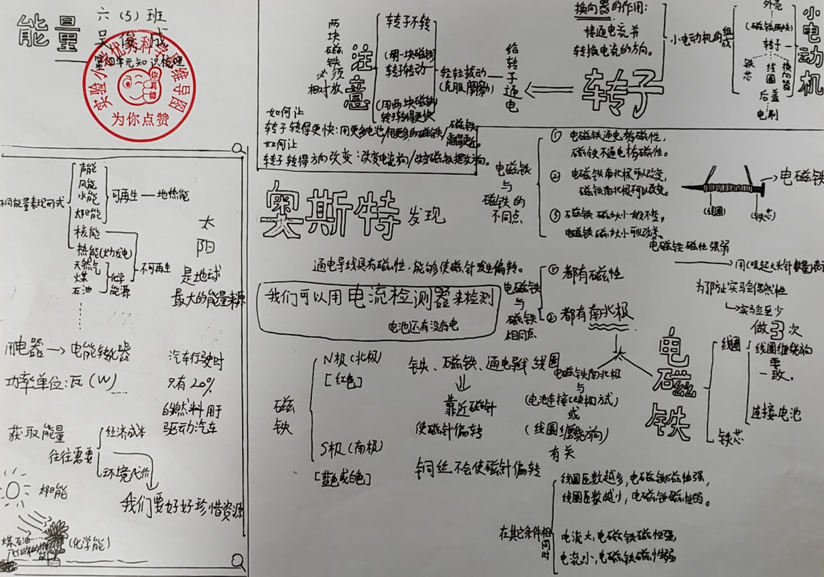 能量
六(5)班
为你点赞
两块磁铁必须相对放
注意
转子不转
(用一块磁铁)
转子转动
(用两块磁铁)
轻轻拨动
(克服摩擦)
给转子通电
转子
换向器的作用:
接通电流并
转换电流的方向。
小电动机的组成
外壳
转子
铁芯
线圈
换向器
后盖
电刷
小电动机
如何让
转子转得更快:
如何让
转子转得方向改变:
不同能量表现形式
声能
风能
水能
太阳能
核能
热能(火力发电)
天然气
煤
石油
化学能源
可再生—地热能
不可再生
太阳
是地球
最大的能量来源
用电器→电能转化器
功率单位:瓦(W)
汽车行驶时
只有20%
的燃料用于
驱动汽车
获取能量
往往需要
经济成本
环境代价
我们要好好珍惜资源
太阳能
(化学能)
奥斯特发现
通电导线具有磁性,能够使磁针发生偏转。
我们可以用电流检测器来检测
电池还有没有电
磁铁
N极(北极)
[红色]
S极(南极)
[蓝色或白色]
铁、磁铁、通电导线线圈
靠近磁针
使磁针偏转
铜丝不会使磁针偏转
电磁铁与磁铁的不同点
① 电磁铁通电有磁性,
磁铁不通电有磁性。
② 电磁铁南北极可以改变,
磁铁南北极不可以改变。
③ 磁铁磁力大小不变,
电磁铁磁力大小可以改变。
电磁铁
(线圈)
(铁芯)
电磁铁与磁铁相同点
① 都有磁性
② 都有南北极
电磁铁南北极
与
(电池连接正负极方式)
或
(线圈缠绕方向)
有关
电磁铁磁性强弱
为了防止实验偶然性
→实验至少
做3次
电磁铁
线圈
线圈缠绕方向要一致。
连接电池
铁芯
在其它条件相同时
线圈匝数越多,电磁铁磁性强,
线圈匝数越少,电磁铁磁性弱。
电流大,电磁铁磁性强
电流小,电磁铁磁性弱